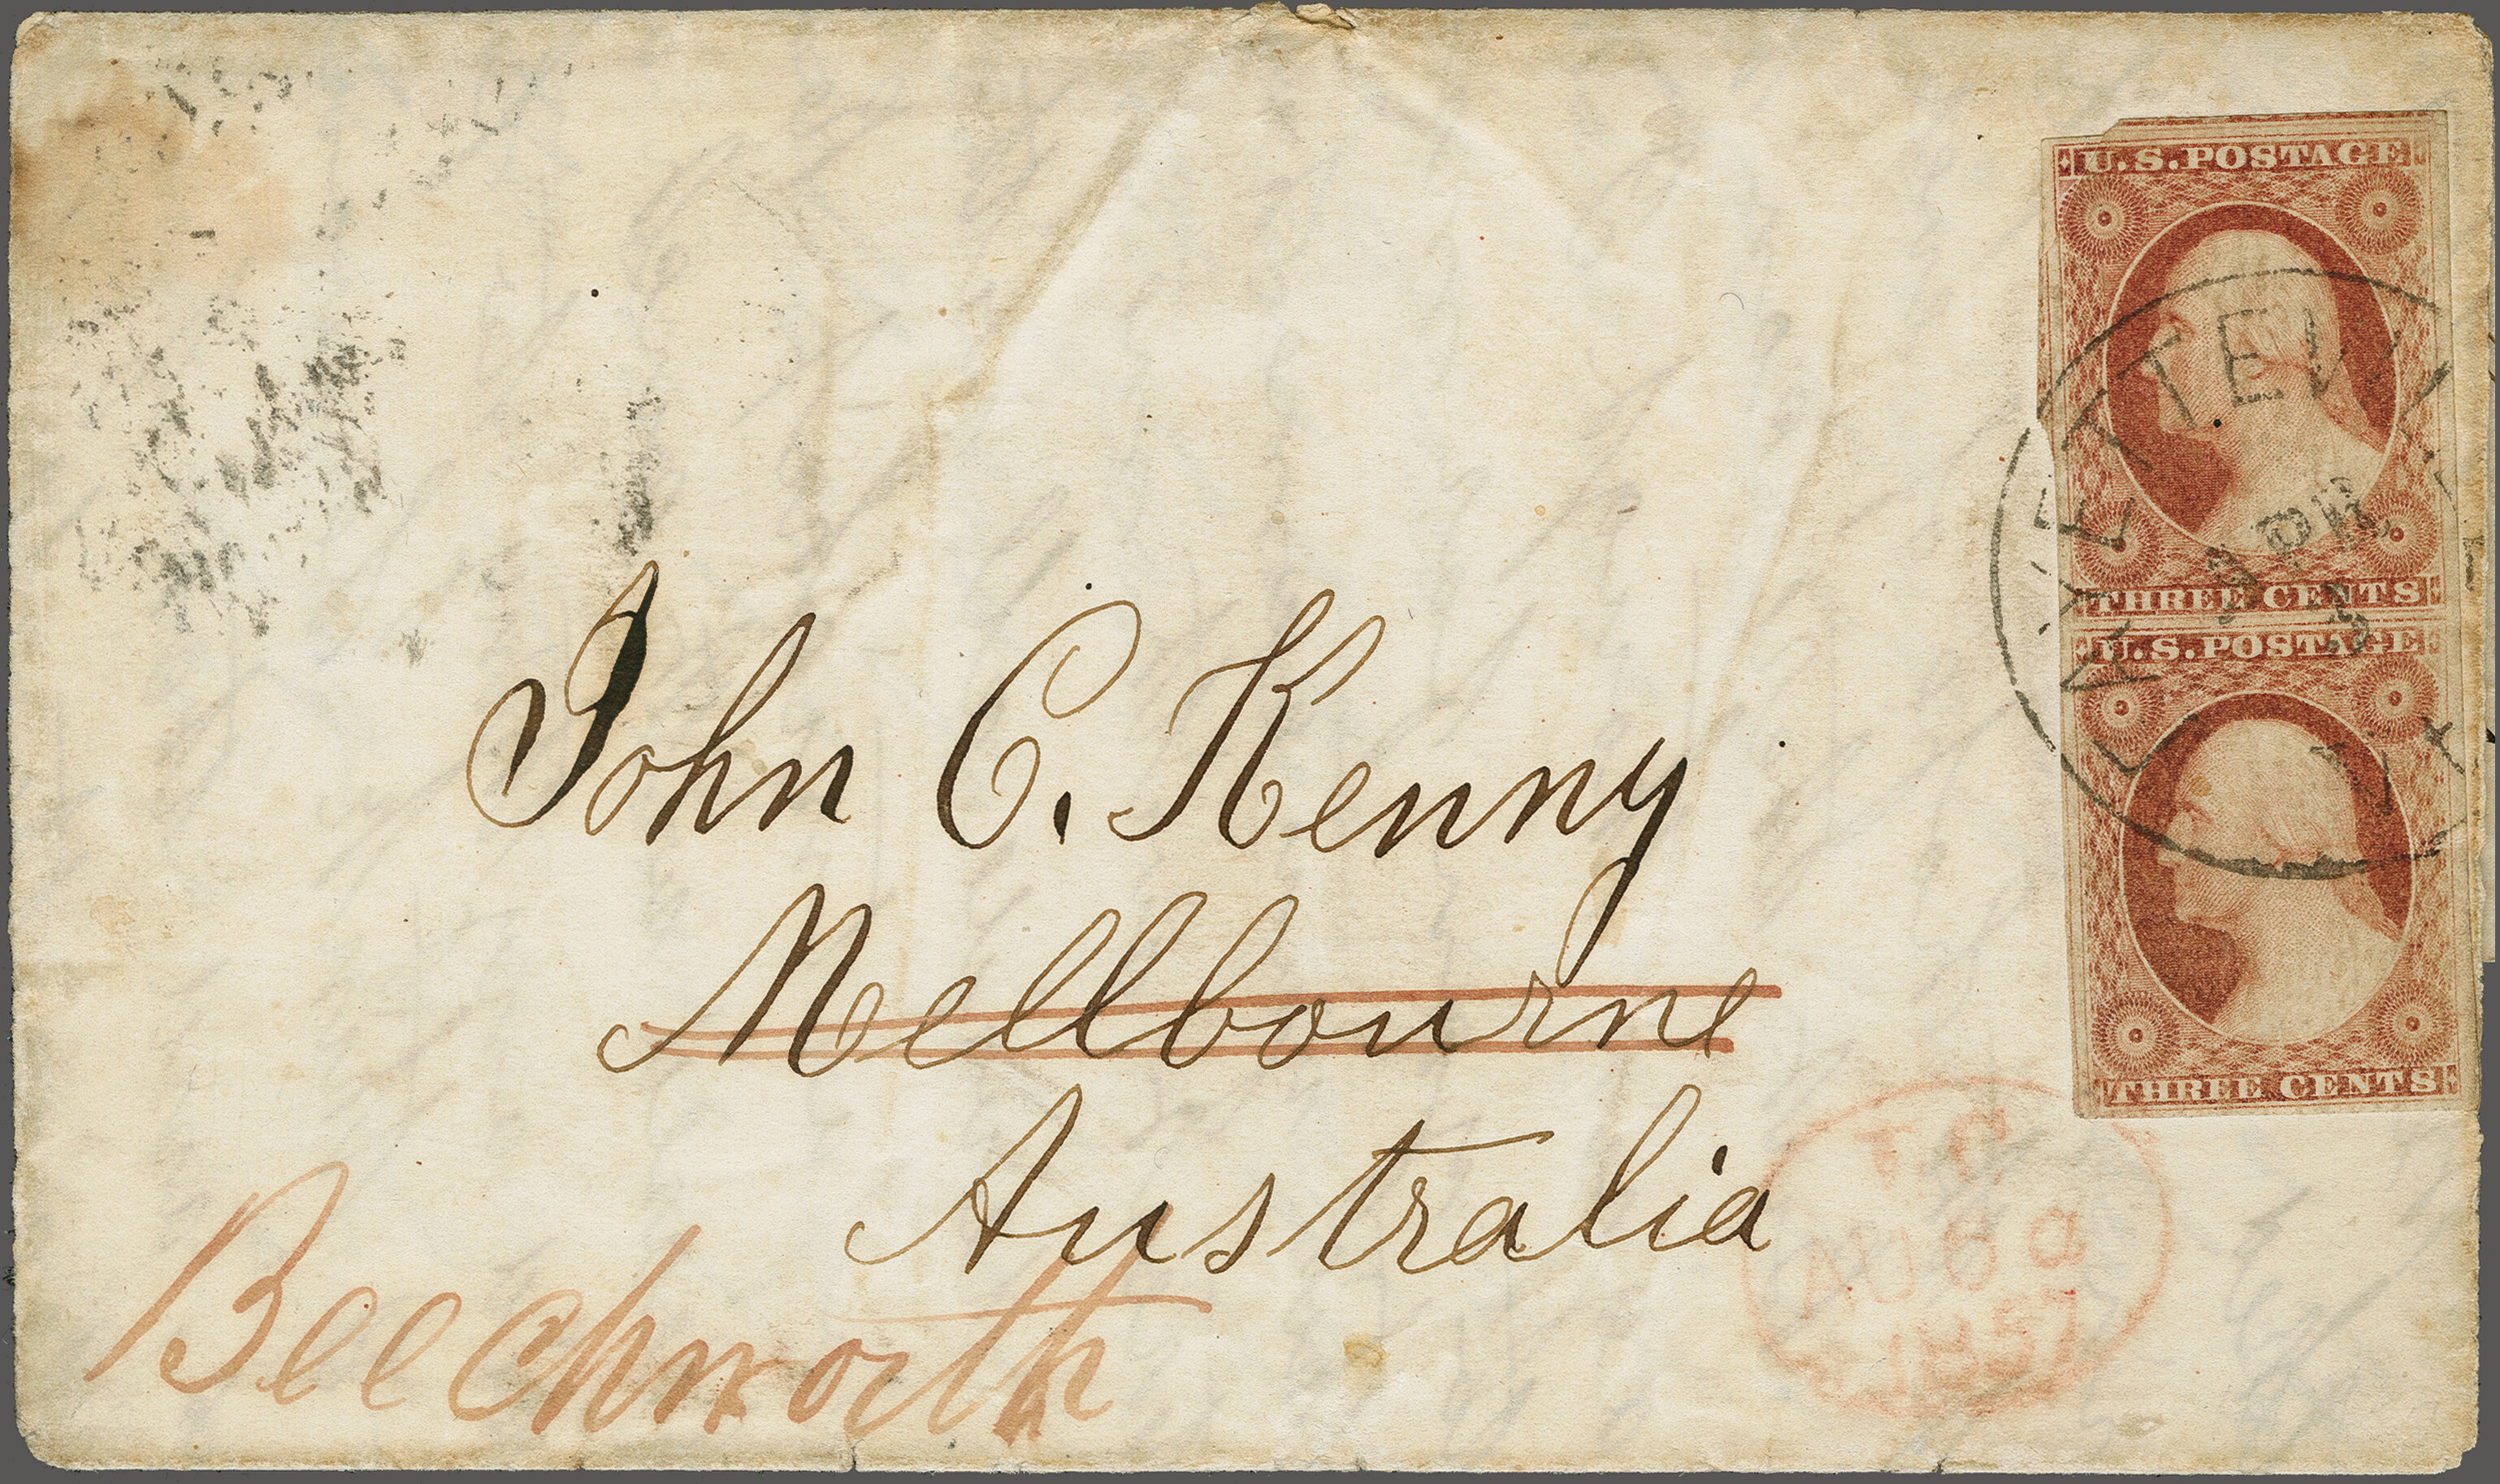 U.S. POSTAGE
THREE CENTS
U.S. POSTAGE
THREE CENTS
APR
5
John C. Kenny
Mellbourne
Australia
Beechworth
AU 6
1857